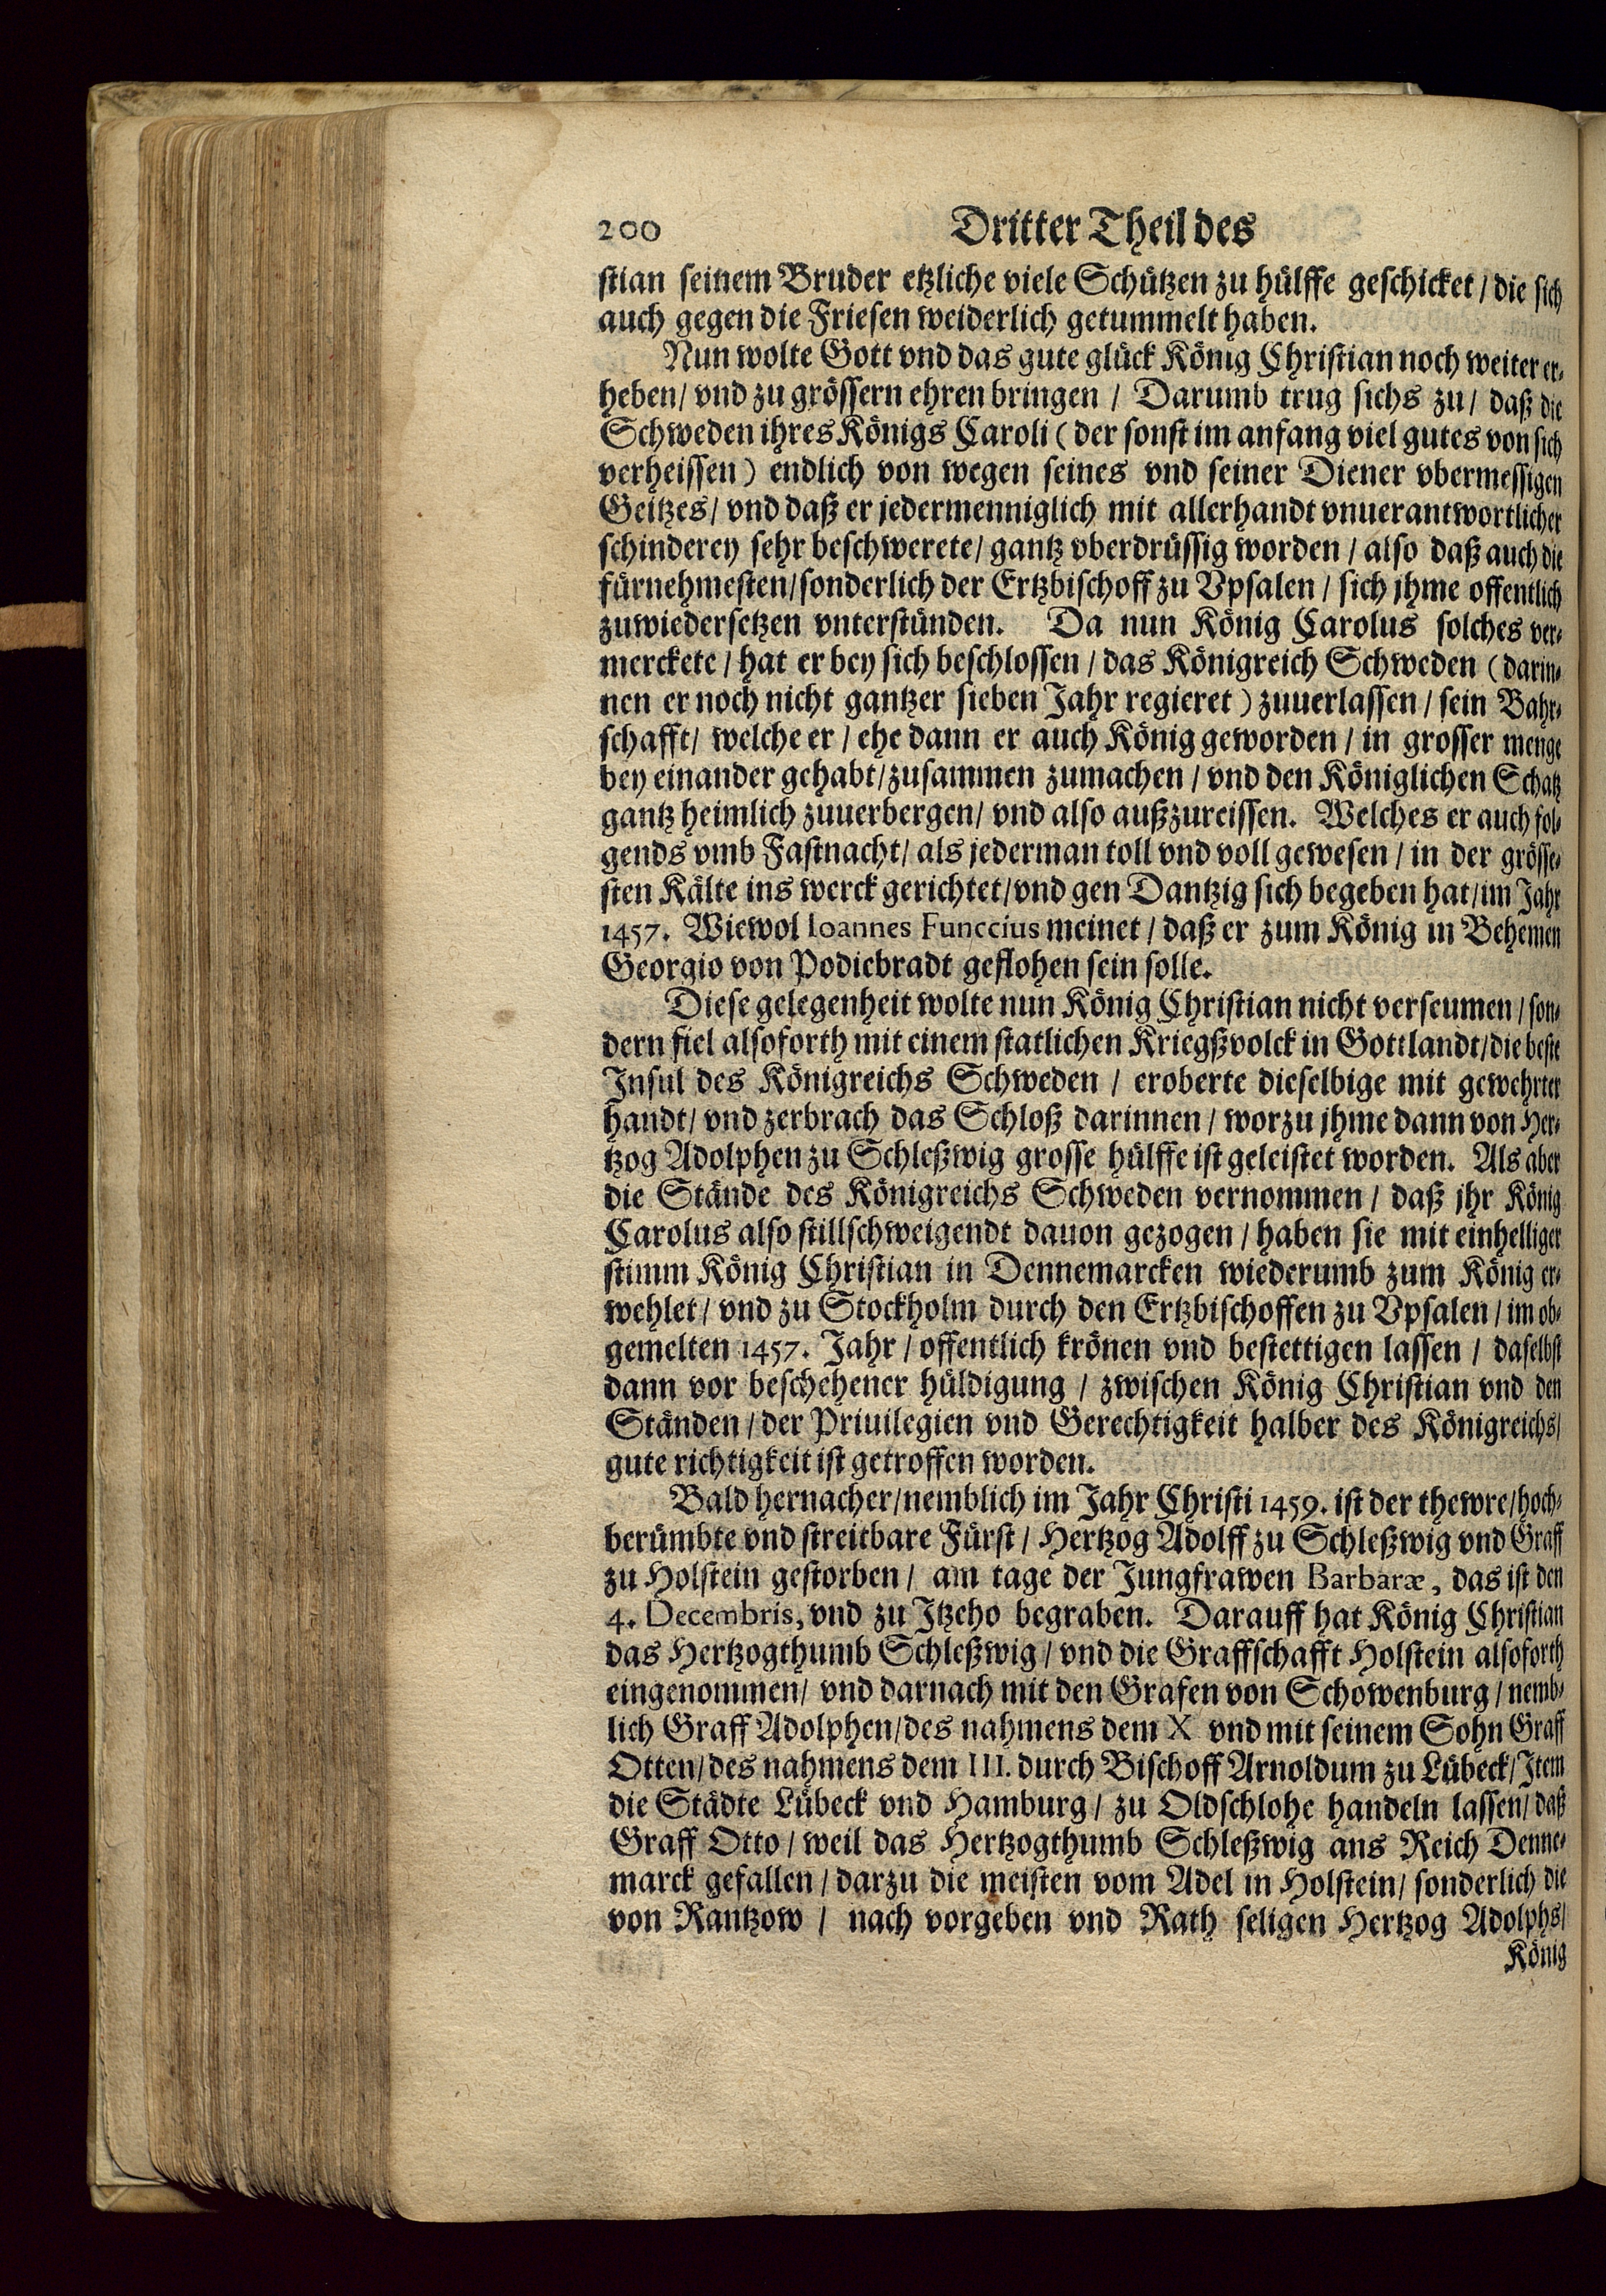 200 Dritter Theil des
stian seinem Bruder etzliche viele Schützen zu hülffe geschicket / die sich
auch gegen die Friesen weiderlich getummelt haben.
Nun wolte Gott vnd das gute glück König Christian noch weiter er-
heben / vnd zu grössern ehren bringen / Darumb trug sichs zu / daß die
Schweden ihres Königs Caroli (der sonst im anfang viel gutes von sich
verheissen) endlich von wegen seines vnd seiner Diener vbermessigen
Geitzes / vnd daß er jedermenniglich mit allerhandt vnuerantwortlicher
schinderey sehr beschwerete / gantz vberdrüssig worden / also daß auch die
fürnehmesten / sonderlich der Ertzbischoff zu Vpsalen / sich jhme offentlich
zuwiedersetzen vnterstünden. Da nun König Carolus solches ver-
merckete / hat er bey sich beschlossen / das Königreich Schweden (darin-
nen er noch nicht gantzer sieben Jahr regieret) zuuerlassen / sein Bahr-
schafft / welche er / ehe dann er auch König geworden / in grosser menge
bey einander gehabt / zusammen zumachen / vnd den Königlichen Schatz
gantz heimlich zuuerbergen / vnd also außzureissen. Welches er auch fol-
gends vmb Fastnacht / als jederman toll vnd voll gewesen / in der grösse-
sten Kälte ins werck gerichtet / vnd gen Dantzig sich begeben hat / im Jahr
1457. Wiewol Ioannes Funccius meinet / daß er zum König in Behemen
Georgio von Podiebradt geflohen sein solle.
Diese gelegenheit wolte nun König Christian nicht verseumen / son-
dern fiel alsoforth mit einem statlichen Kriegßvolck in Gottlandt / die beste
Insul des Königreichs Schweden / eroberte dieselbige mit gewehrter
handt / vnd zerbrach das Schloß darinnen / worzu jhme dann von Her-
tzog Adolphen zu Schleßwig grosse hülffe ist geleistet worden. Als aber
die Stände des Königreichs Schweden vernommen / daß jhr König
Carolus also stillschweigendt dauon gezogen / haben sie mit einhelliger
stimm König Christian in Dennemarcken wiederumb zum König er-
wehlet / vnd zu Stockholm durch den Ertzbischoffen zu Vpsalen / im ob-
gemelten 1457. Jahr / offentlich krönen vnd bestettigen lassen / daselbst
dann vor beschehener hüldigung / zwischen König Christian vnd den
Ständen / der Priuilegien vnd Gerechtigkeit halber des Königreichs /
gute richtigkeit ist getroffen worden.
Bald hernacher / nemblich im Jahr Christi 1459. ist der thewre / hoch-
berümbte vnd streitbare Fürst / Hertzog Adolff zu Schleßwig vnd Graff
zu Holstein gestorben / am tage der Jungfrawen Barbaræ, das ist den
4. Decembris, vnd zu Jtzeho begraben. Darauff hat König Christian
das Hertzogthumb Schleßwig / vnd die Graffschafft Holstein alsoforth
eingenommen / vnd darnach mit den Grafen von Schowenburg / nemb-
lich Graff Adolphen / des nahmens dem X vnd mit seinem Sohn Graff
Otten / des nahmens dem III. durch Bischoff Arnoldum zu Lübeck / Jtem
die Städte Lübeck vnd Hamburg / zu Oldschlohe handeln lassen / daß
Graff Otto / weil das Hertzogthumb Schleßwig ans Reich Denne-
marck gefallen / darzu die meisten vom Adel in Holstein / sonderlich die
von Rantzow / nach vorgeben vnd Rath seligen Hertzog Adolphs /
König